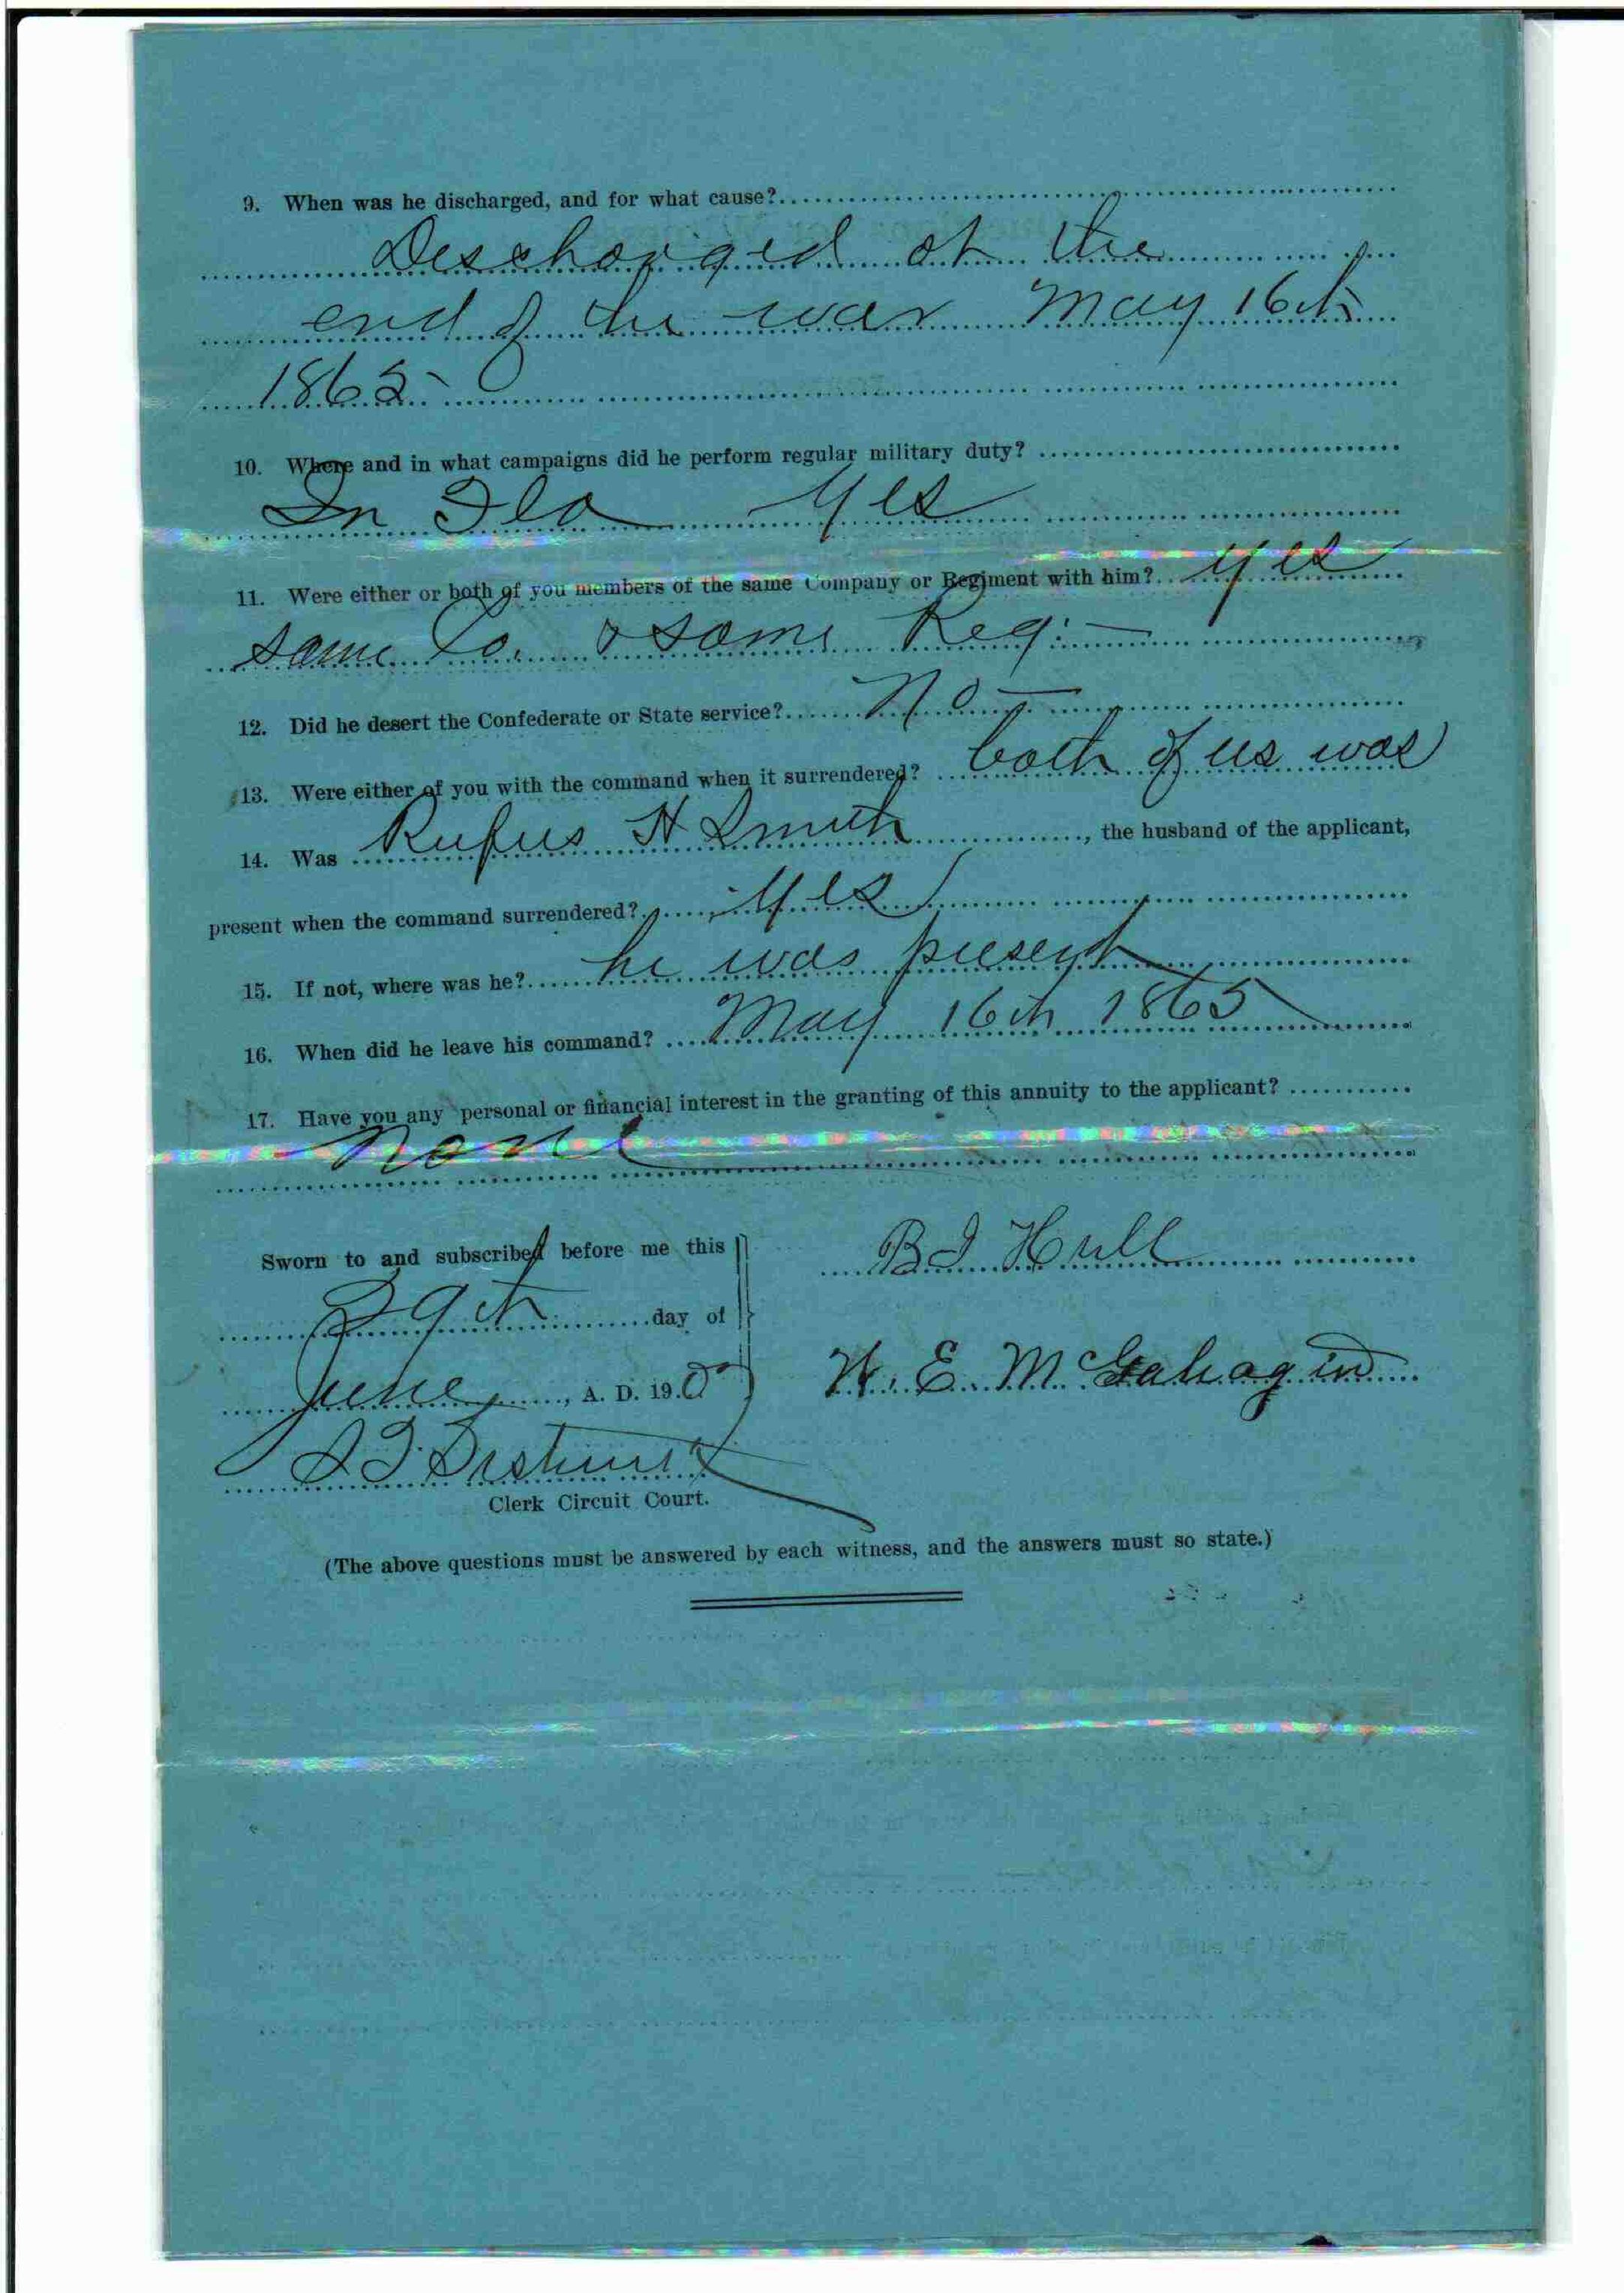 9. When was he discharged, and for what cause?
Descharged at the
end of the war May 16th
1865
10. Where and in what campaigns did he perform regular military duty?
In Fla Yes
11. Were either or both of you members of the same Company or Regiment with him? Yes
same Co. & same Reg.
12. Did he desert the Confederate or State service? No
13. Were either of you with the command when it surrendered? both of us was
14. Was Rufus H Smith, the husband of the applicant,
present when the command surrendered? Yes
15. If not, where was he? he was present
16. When did he leave his command? May 16th 1865
17. Have you any personal or financial interest in the granting of this annuity to the applicant?
None
Sworn to and subscribed before me this
29th day of
June, A. D. 190
B I Hull
W. E. McGahagin
Clerk Circuit Court.
(The above questions must be answered by each witness, and the answers must so state.)